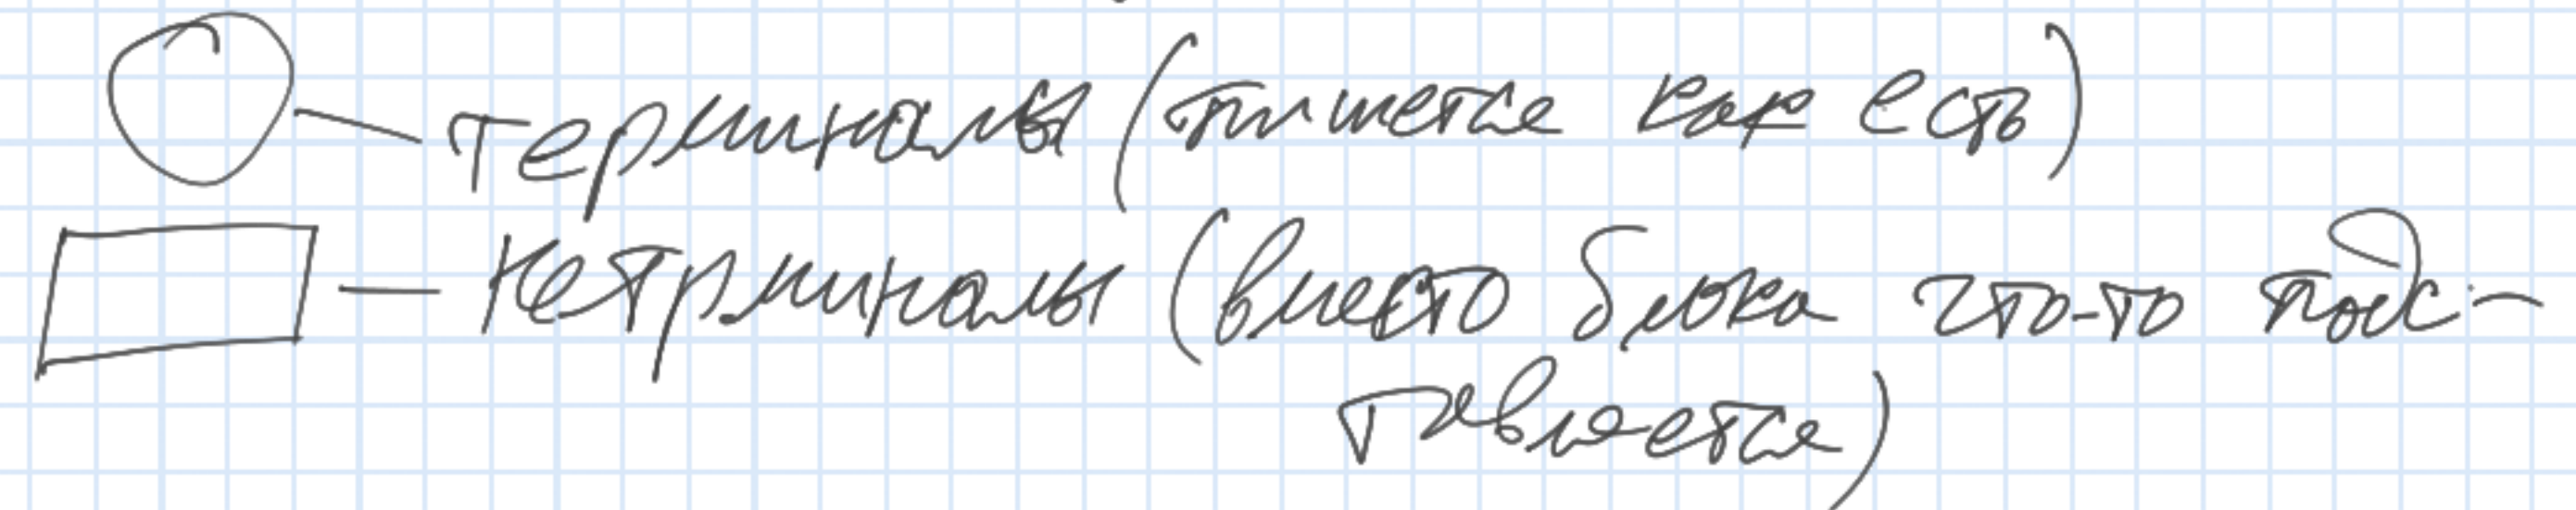 — терминалы (пишется как есть)
— нетрминалы (вместо блока что-то подс-
тавляется)